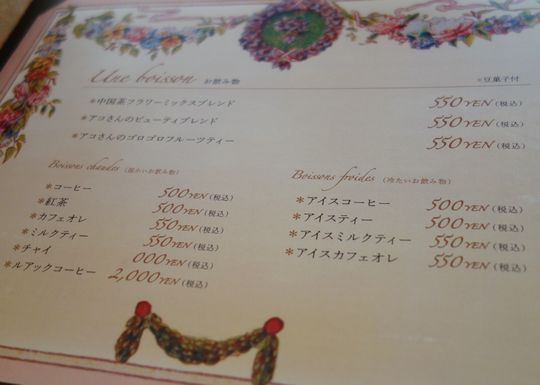 Une boisson お飲み物
*豆菓子付
*中国茶フラワーミックスブレンド 550YEN(税込)
*アコさんのビューティブレンド 550YEN(税込)
*アコさんのゴロゴロフルーツティー 550YEN(税込)
Boissons chaudes (温かいお飲み物)
*コーヒー 500YEN(税込)
*紅茶 500YEN(税込)
*カフェオレ 550YEN(税込)
*ミルクティー 550YEN(税込)
*チャイ 000YEN(税込)
*ルアックコーヒー 2,000YEN(税込)
Boissons froides (冷たいお飲み物)
*アイスコーヒー 500YEN(税込)
*アイスティー 500YEN(税込)
*アイスミルクティー 550YEN(税込)
*アイスカフェオレ 550YEN(税込)